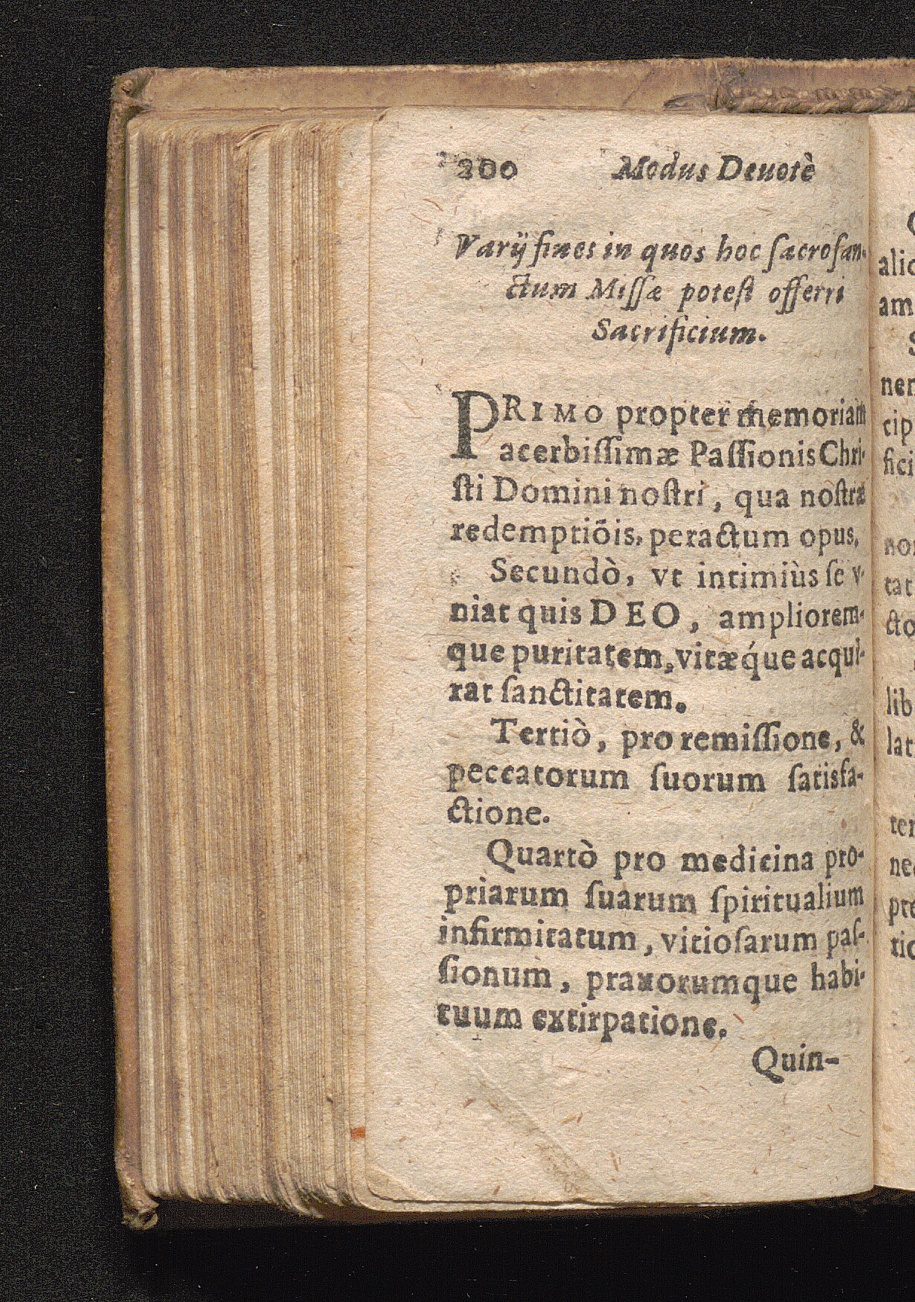 200 Modus Deuotè
Varij fines in quos hoc ſacroſan-
ctum Miſſæ poteſt offerri
Sacrificium.
PRIMO propter memoriam
acerbiſſimæ Paſſionis Chri-
ſti Domini noſtri, qua noſtræ
redemptiõis, peractum opus.
Secundò, vt intimiùs ſe v-
niat quis DEO, ampliorem-
que puritatem, vitæq́ue acqui-
rat ſanctitatem.
Tertiò, pro remiſſione, &
peccatorum ſuorum ſatisfa-
ctione.
Quartò pro medicina pro-
priarum ſuarum ſpiritualium
infirmitatum, vitioſarum paſ-
ſionum, prauorumque habi-
tuum extirpatione.
Quin-
alic
am
ner
cip
fici
non
tat
cto
lib
lat
ter
nec
pre
tio